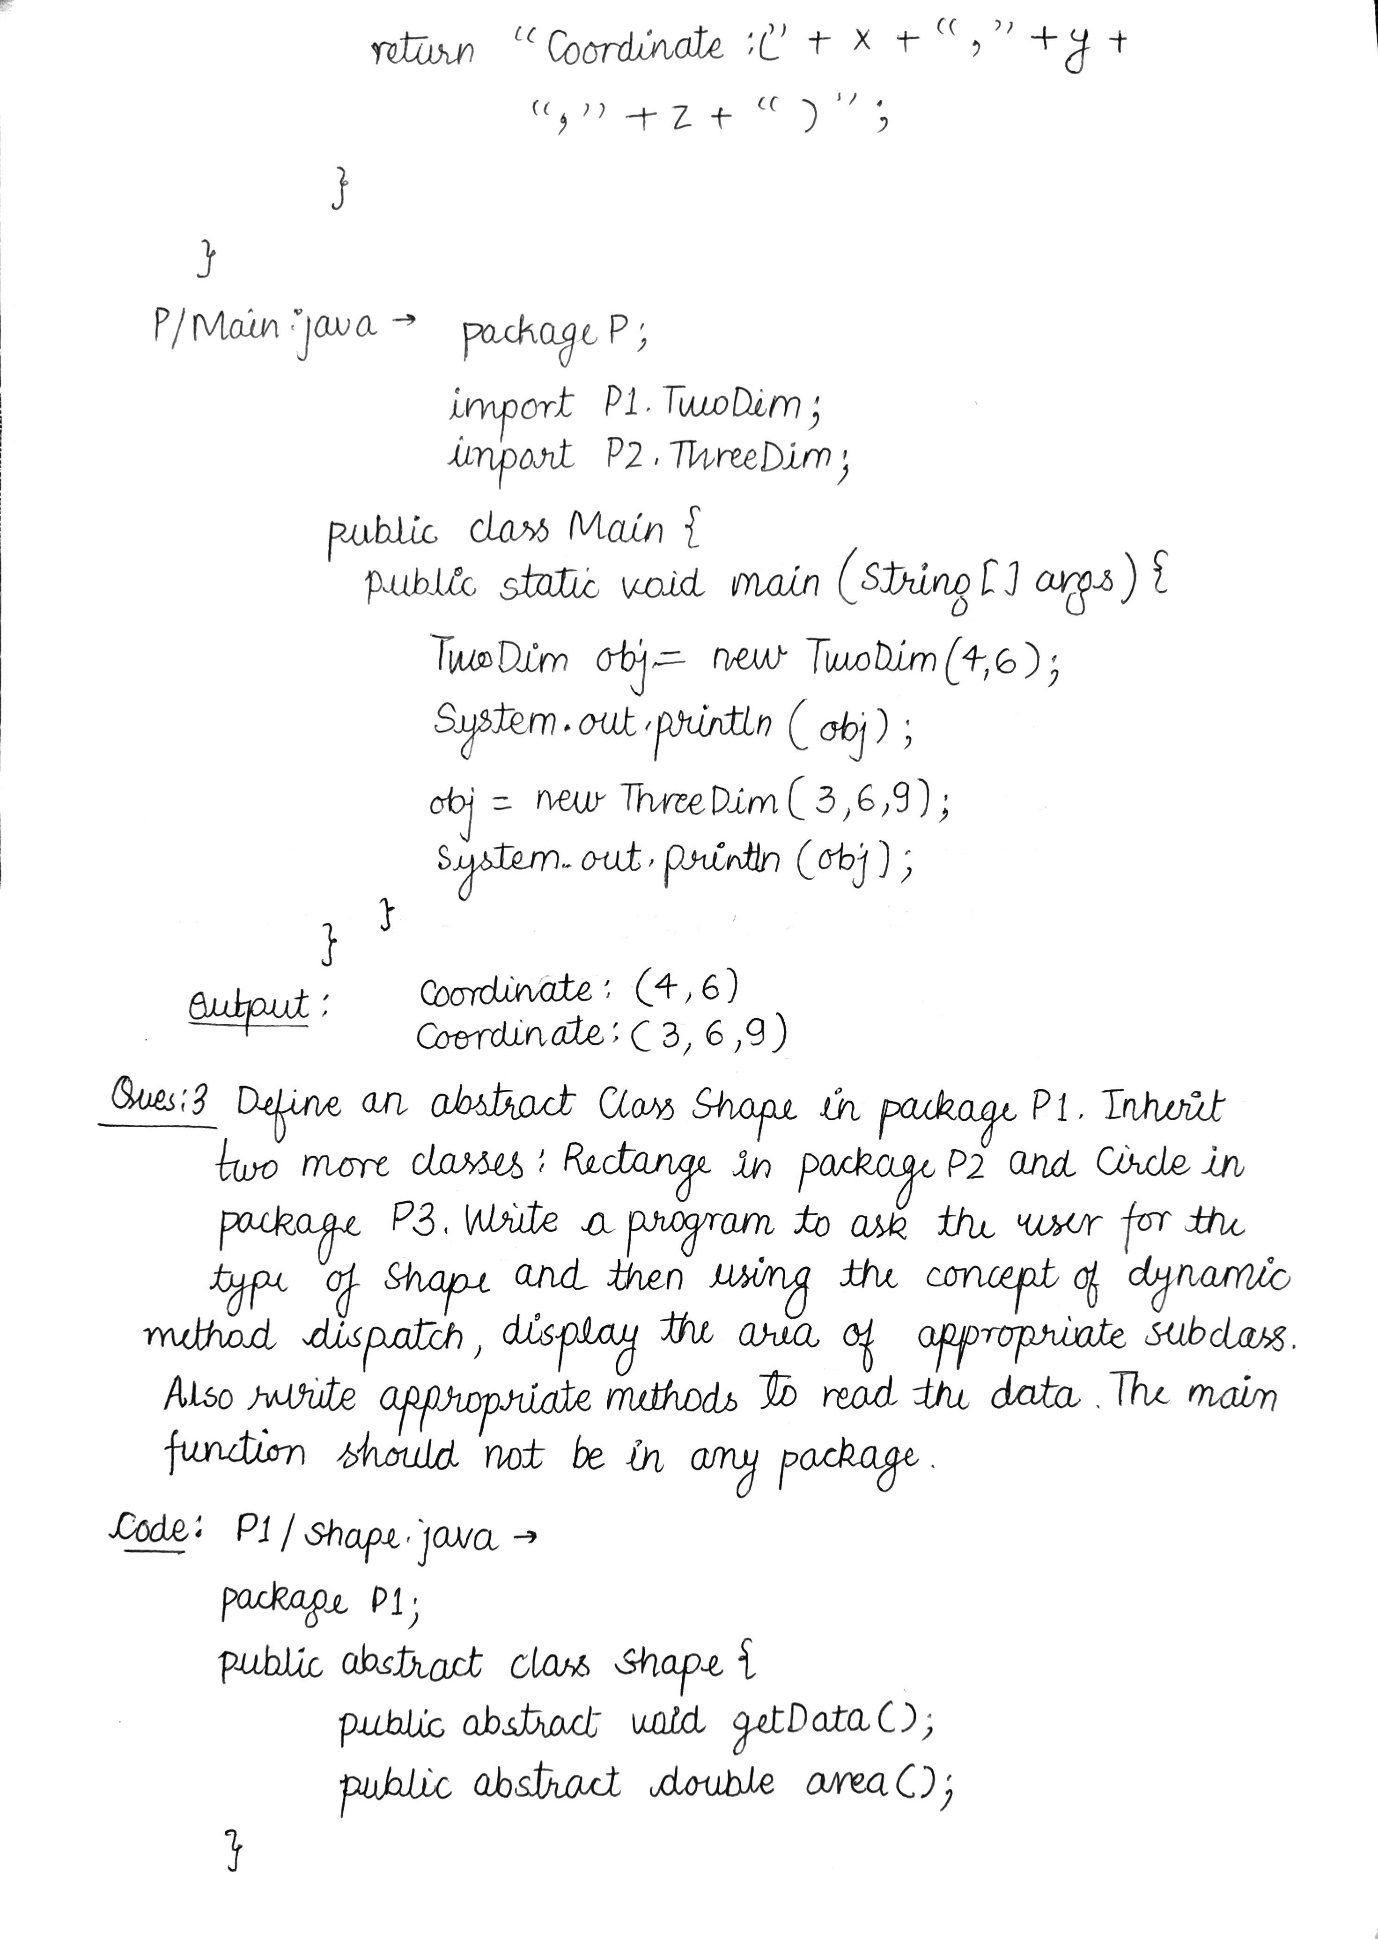 return "Coordinate :(" + x + "," + y +
"," + z + ")";
}
}
P/Main.java → package P;
import P1.TwoDim;
import P2.ThreeDim;
public class Main {
public static void main (String[] args) {
TwoDim obj = new TwoDim(4,6);
System.out.println (obj);
obj = new ThreeDim(3,6,9);
System.out.println (obj);
}
}
Output: Coordinate: (4,6)
Coordinate: (3,6,9)
Ques:3 Define an abstract Class Shape in package P1. Inherit
two more classes: Rectange in package P2 and Circle in
package P3. Write a program to ask the user for the
type of Shape and then using the concept of dynamic
method dispatch, display the area of appropriate subclass.
Also write appropriate methods to read the data. The main
function should not be in any package.
Code: P1/Shape.java →
package P1;
public abstract class Shape {
public abstract void getData();
public abstract double area();
}